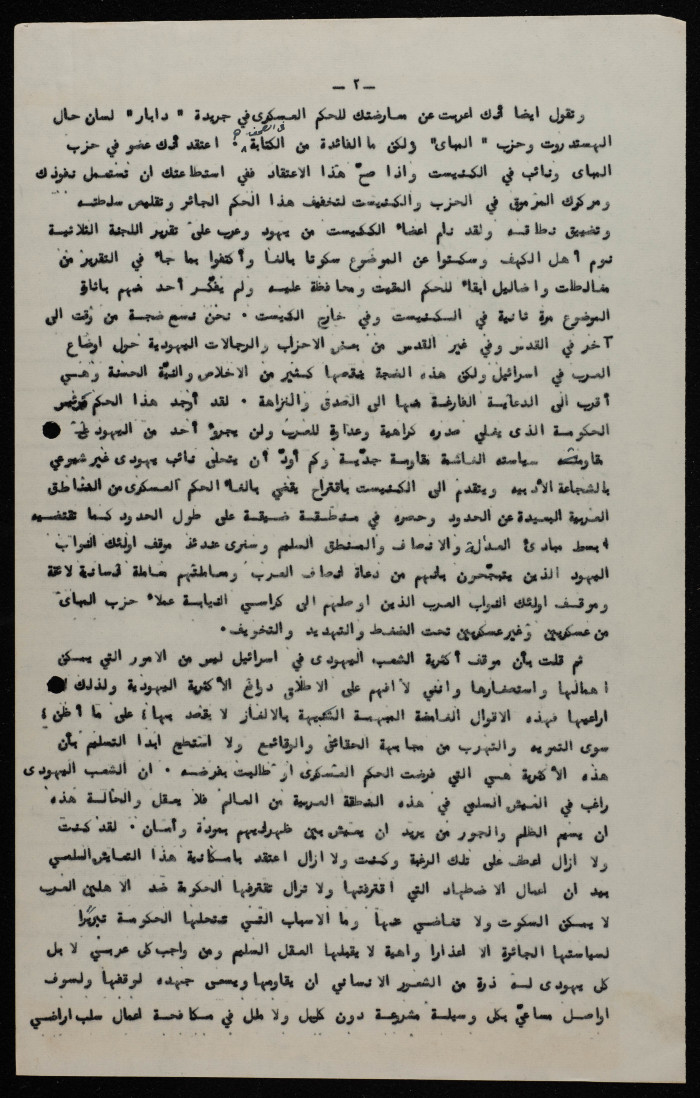 — ٢ —
وتقول ايضا انك اعربت عن معارضتك للحكم العسكرى في جريدة " دابار" لسان حال
الهستدروت وحزب " المباى" ولكن ما الفائدة من الكتابة في الصحف ؟ اعتقد انك عضو في حزب
المباى ونائب في الكنيست واذا صحّ هذا الاعتقاد ففي استطاعتك ان تستعمل نفوذك
ومركزك المرموق في الحزب والكنيست لتخفيف هذا الحكم الجائر وتقليص سلطته
وتضييق نطاقه ولقد نام اعضاء الكنيست من يهود وعرب على تقرير اللجنة الثلاثية
نوم أهل الكهف وسكتوا عن الموضوع سكوتا بالغا وأكتفوا بما جاء في التقرير من
مغالطات واضاليل ابقاء للحكم المقيت ومحافظة عليه ولم يفكّر أحد منهم باثارة
الموضوع مرة ثانية في الكنيست وفي خارج الكنيست ٠ نحن نسمع ضجة من وقت الى
آخر في القدس وفي غير القدس من بعض الاحزاب والرجالات اليهودية حول اوضاع
العرب في اسرائيل ولكن هذه الضجة ينقصها كثير من الاخلاص والنيّة الحسنة وهي
أقرب الى الدعاية الفارغة منها الى الصدق والنزاهة ٠ لقد أوجد هذا الحكم
الحكومة الذى يغلي صدره كراهية وعداوة للعرب ولن يجرؤ أحد من اليهود على
مقاومة سياسته الغاشمة مقاومة جدّية وكم أودّ أن يتحلى نائب يهودى غير شيوعي
بالشجاعة الأدبيه ويتقدم الى الكنيست باقتراح يقضي بالغاء الحكم العسكرى من المناطق
العربية البعيدة عن الحدود وحصره في منطقة ضيقة على طول الحدود كما تقتضيه
ابسط مبادئ العدالة والانصاف والمنطق السليم وسنرى عندئذ موقف اولئك النواب
اليهود الذين يتبجّحون بانهم من دعاة انصاف العرب ومعاملتهم معاملة انسانية لائقة
وموقف اولئك النواب العرب الذين اوصلهم الى كراسي النيابة عملاء حزب المباى
من عسكريين وغير عسكريين تحت الضغط والتهديد والتخويف٠
ثم قلت بأن موقف أكثرية الشعب اليهودى في اسرائيل ليس من الامور التي يمكن
اهمالها واستصغارها وانني لا افهم على الاطلاق دوافع الأكثرية اليهودية ولذلك لا
اراعيها فهذه الاقوال الغامضة المبهمة الشبيهة بالالغاز لا يقصد بها ، على ما أظن ،
سوى التمويه والتهرب من مجابهة الحقائق والوقائع ولا استطيع ابدا التسليم بأن
هذه الأكثرية هي التي فرضت الحكم العسكرى او طالبت بفرضه ٠ ان الشعب اليهودى
راغب في العيش السلمي في هذه المنطقة العربية من العالم فلا يعقل والحالة هذه
ان يسيم الظلم والجور من يريد ان يعيش بين ظهرانيهم بمودة وأمان ٠ لقد كنت
ولا ازال اعطف على تلك الرغبة وكنت ولا ازال اعتقد بامكانية هذا التعايش السلمي
بيد ان اعمال الاضطهاد التي اقترفتها ولا تزال تقترفها الحكومة ضد الاهلين العرب
لا يمكن السكوت ولا تغاضي عنها وما الاسباب التي تنتحلها الحكومة تبريرًا
لسياستها الجائرة الا اعذارا واهية لا يقبلها العقل السليم ومن واجب كل عربيّ لا بل
كل يهودى له ذرة من الشعور الانساني ان يقاومها ويسعى جهده لوقفها ولسوف
اواصل مساعيّ بكل وسيلة مشروعة دون كلل ولا ملل في مكافحة اعمال سلب اراضي